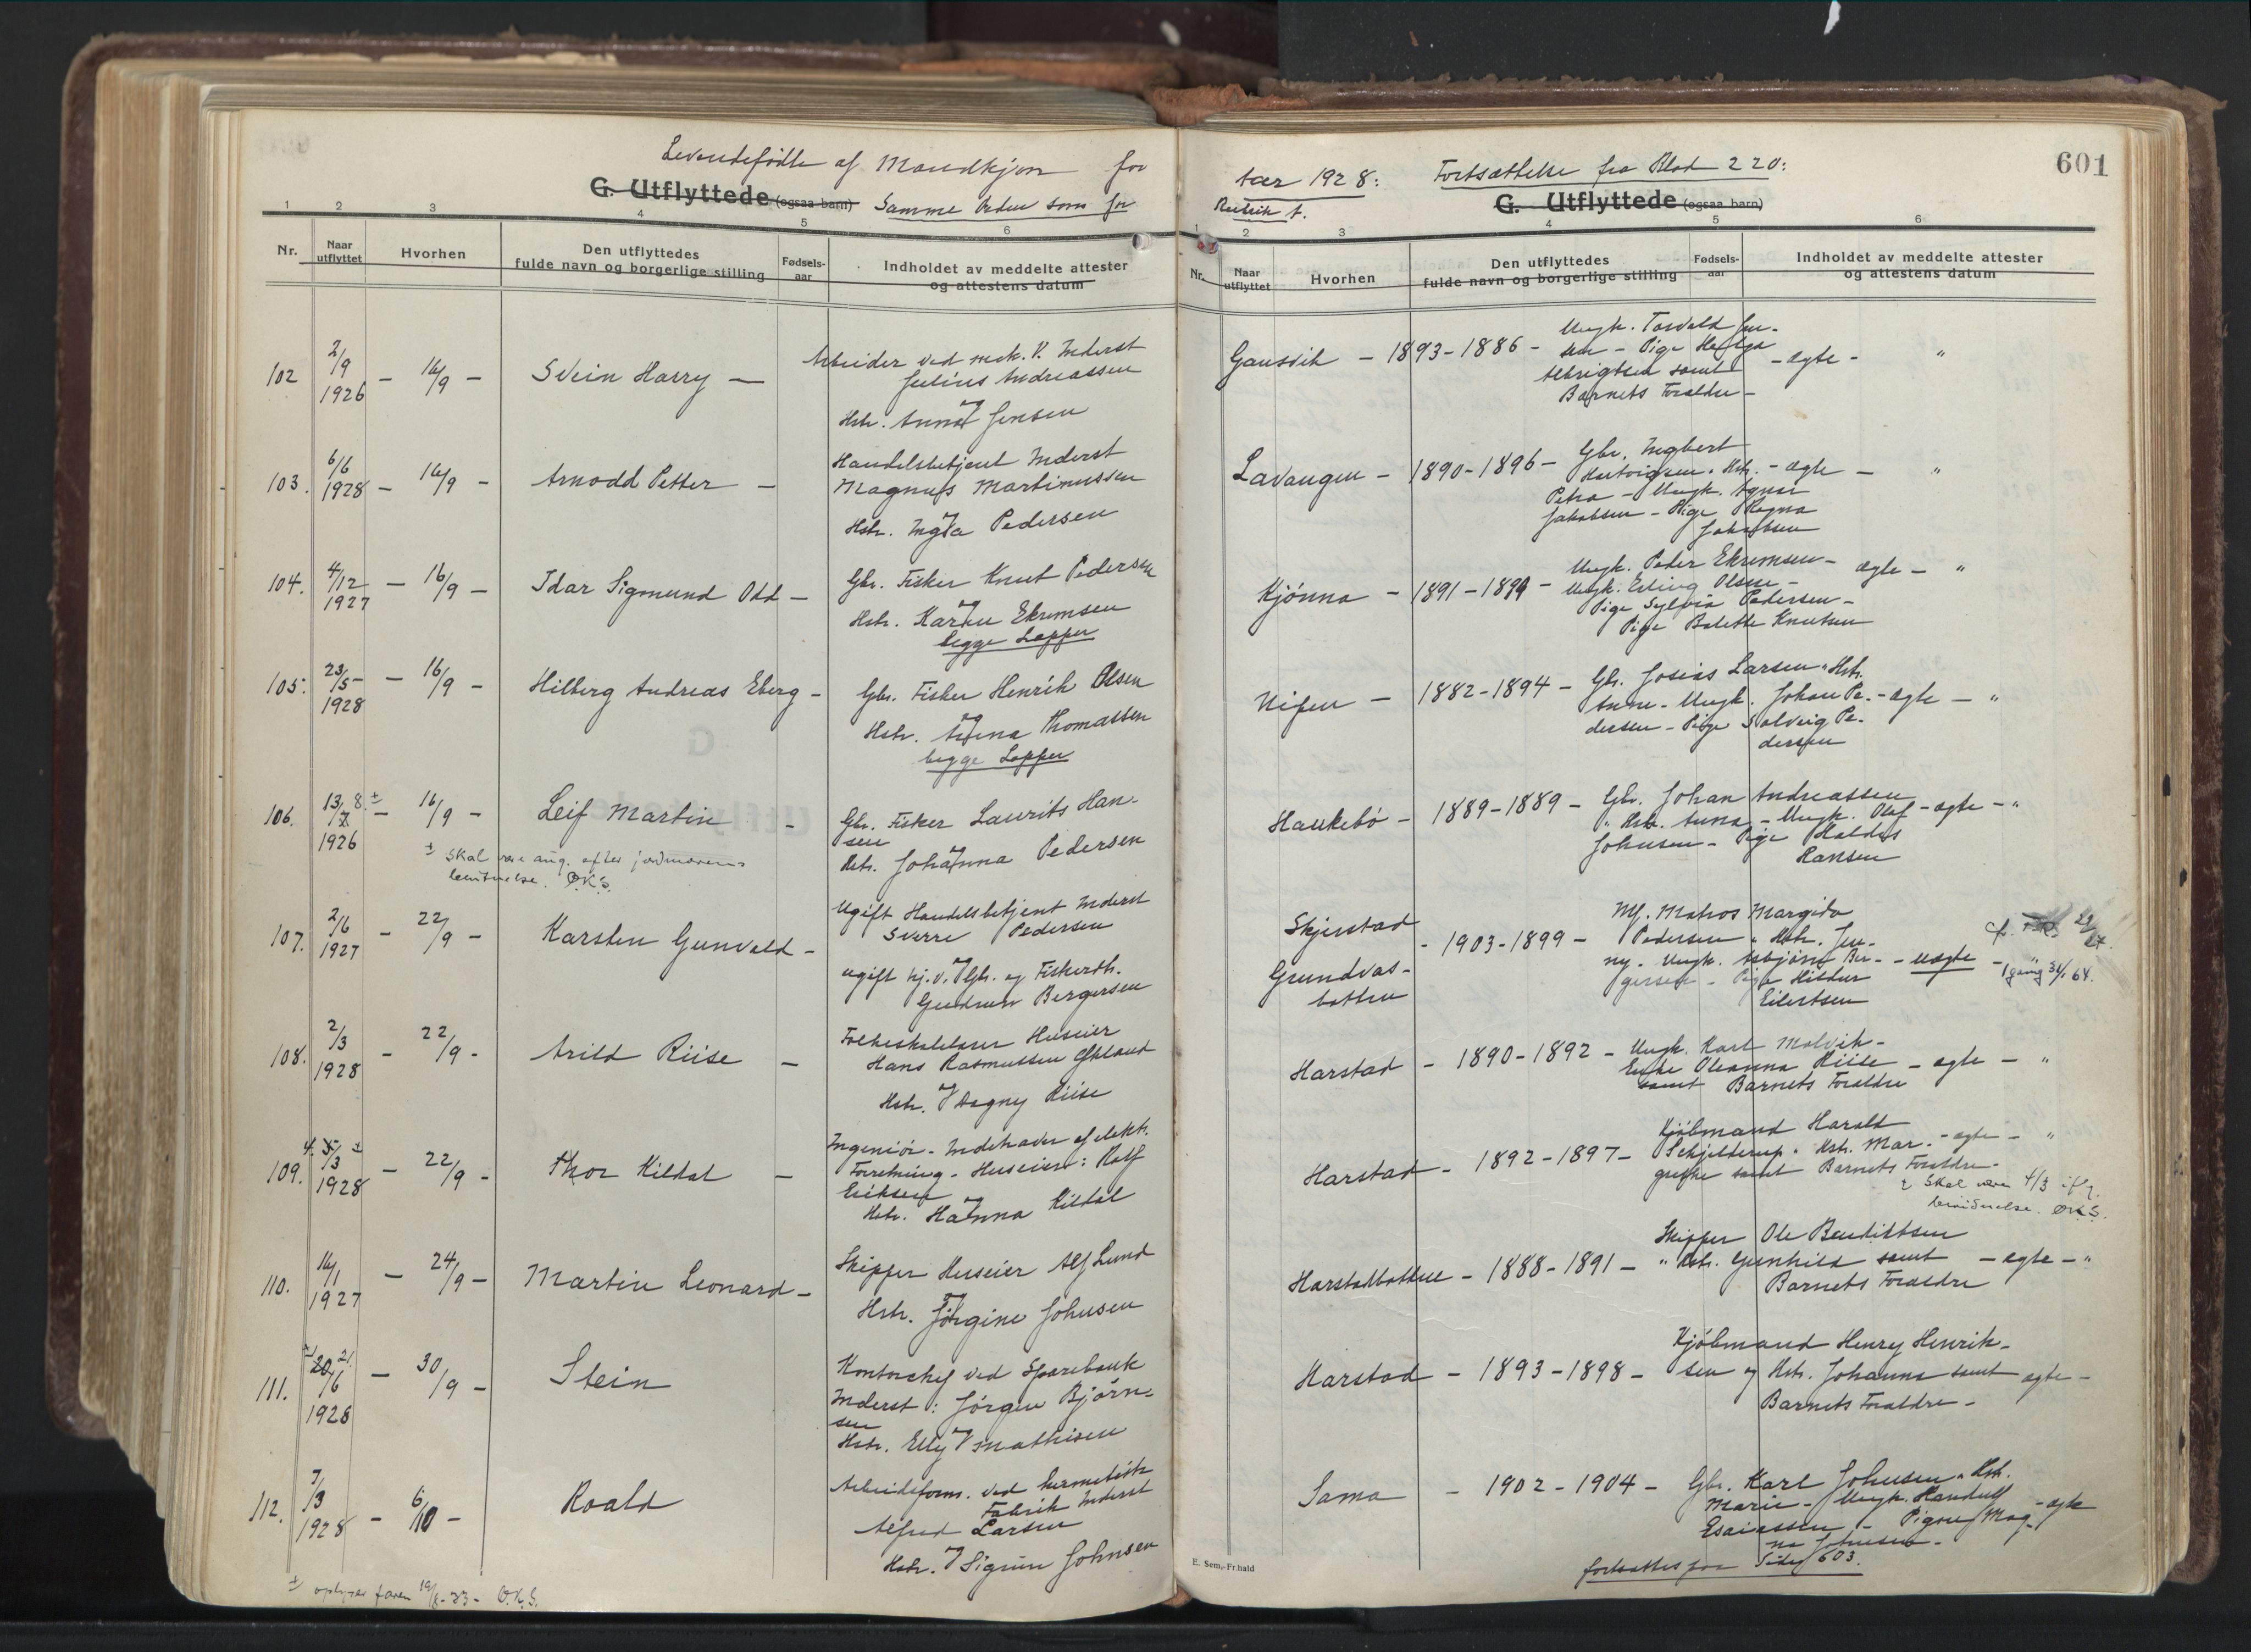 Levendefødte af Mandkjøn for
G. Utflyttede (ogsaa barn) Samme Orden som for
1 2 3 4 5 6
Nr. Naar utflyttet Hvorhen Den utflyttedes fulde navn og borgerlige stilling Fødselsaar Indholdet av meddelte attester og attestens datum
102 2/9 1926 - 16/9 - Svein Harry -
Arbeider ved mek. V. Inderst
Julius Andreassen
og
Hstr. Anna Jensen
103. 6/6 1928 - 16/9 - Arnodd Petter -
Handelsbetjent Inderst
Magnus Martinussen
og
Hstr. Inga Pedersen
104. 4/12 1927 - 16/9 - Idar Sigmund Odd -
Gbr. Fisker Knut Pedersen
og
Hstr. Karen Ekremsen
begge Lapper
105. 23/5 1928 - 16/9 - Hilberg Andreas Eberg -
Gbr. Fisker Henrik Olsen
og
Hstr. Anna Thomassen
begge Lapper
106. 13/7 8. ± 1926 - 16/9 - Leif Martin -
± Skal være aug. efter jordmorens
bevidnelse. O.K.S.
Gbr. Fisker Laurits Han-
sen
og
Hstr. Johanna Pedersen
107. 2/6 1927 - 22/9 - Karsten Gunvald -
Ugift Handelsbetjent Inderst
Sverre Pedersen
og
ugift hj. v. Gbr. og Fiskerdtr.
Gudrun Bergersen
108. 2/3 1928 - 22/9 - Arild Riise -
Folkeskolelærer Huseier
Hans Rasmussen Økland
og
Hstr. Dagny Riise
109. 4. 5/3 ± 1928 - 22/9 - Thor Kildal -
Ingeniør - Indehaver af elektr.
Forretning - Huseier: Rolf
Eriksen
og
Hstr. Hanna Kildal
110. 16/1 1927 - 24/9 - Martin Leonard -
Skipper Huseier Alf Lund
og
Hstr. Jørgine Johnsen
111. ± 20 21. /6 1928 - 30/9 - Stein
Kontorchef ved Sparebank
Inderst: Jørgen Bjørn-
sen
og
Hstr. Elly Mathisen
112. 7/3 1928 - 6/10 - Roald
Arbeidsform. ved hermetisk
Fabrik Inderst
Alfred Larsen
og
Hstr. Sigrun Johnsen
± oplyser faren 19/8-33 - O.K.S.
601
taar 1928: Fortsættelse fra Blad 220:
Rubrik 1. G. Utflyttede (ogsaa barn)
1 2 3 4 5 6
Nr. Naar utflyttet Hvorhen Den utflyttedes fulde navn og borgerlige stilling Fødselsaar Indholdet av meddelte attester og attestens datum
Gausvik - 1893-1886 -
Ungk. Torvald Jen-
sen - Pige Helga
Albrigtsen samt - ægte - "
Barnets Forældre -
Lavangen - 1890-1896 -
Gbr. Ingbert
Hartvigsen " Hstr. - ægte - "
Petra - Ungk. Agnar
Jakobsen - Pige Magna
Jakobsen
Kjønna - 1891-1899 -
Ungk. Peder Ekremsen - ægte - "
Ungk. Erling Olsen -
Pige Sylvia Pedersen -
Pige Balette Knutsen
Nipen - 1882-1894 -
Gbr. Josias Larsen " Hstr.
Anne - Ungk. Johan Pe- - ægte - "
dersen - Pige Solveig Pe-
dersen
Haukebø - 1889-1889 -
Gbr. Johan Andreassen
" Hstr. Anna - Ungk. Olaf - ægte - "
Johnsen - Pige Haldis
Hansen
Skjerstad
Grundvas-
botten - 1903-1899 -
Mf. Matros Margido
Pedersen " Hstr. Jen-
ny - Ungk. Asbjørn Ber- - uægte - "
gersen - Pige Hildur
Eilertsen
Harstad - 1890-1892 -
Ungk. Karl Molvik -
Enke Oleanna Riise - ægte - "
samt Barnets Forældre
Harstad - 1892-1897 -
Kjøbmand Harald
Schjelderup " Hstr. Mar- - ægte - "
grethe samt Barnets Forældre -
± Skal være 4/3 iflg.
bevidnelse. O.K.S.
Harstadbotten - 1888-1891 -
Skipper Ole Bendiktsen
" Hstr. Gunhild samt - ægte - "
Barnets Forældre
Harstad - 1893-1898 -
Kjøbmand Henry Henrik-
sen og Hstr. Johanna samt ægte -
Barnets Forældre -
Sama - 1902-1904 -
Gbr. Karl Johnsen " Hstr.
Marie - Ungk. Handulf - ægte
Esaiassen - Pigen Mag-
na Johnsen -
fortsættes paa Side 603.
E. Sem,-Fr.hald